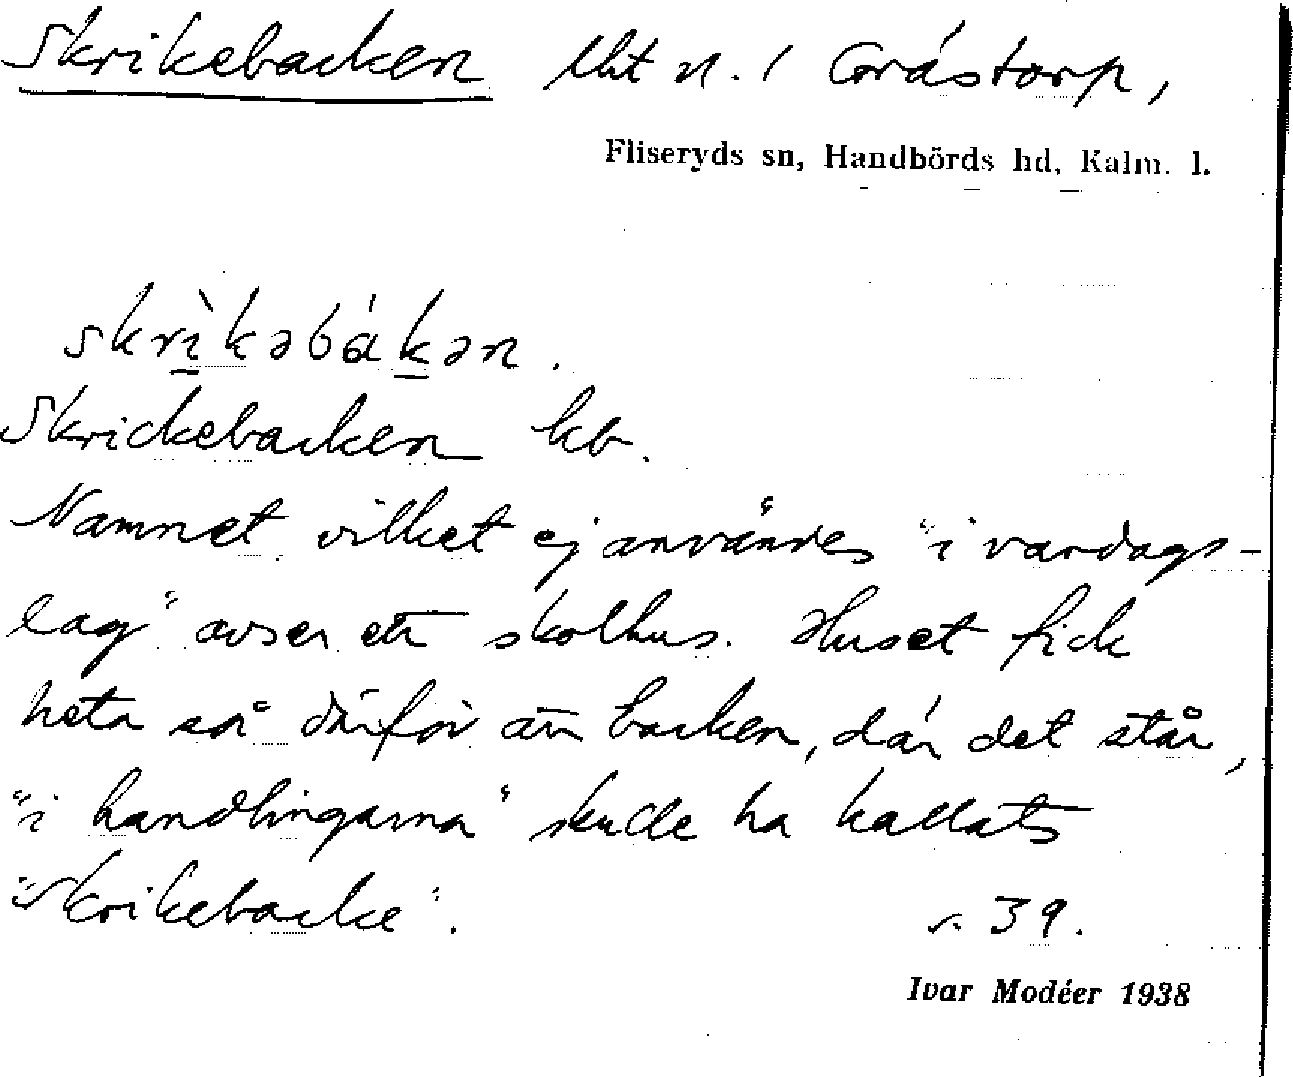 Skrikebacken lht n. / Gråstorp,
Fliseryds sn, Handbörds hd, Kalm. l.
skrìkəbákən.
Skrickebacken kb.
Namnet vilket ej användes "i vardags-
lag" avser ett skolhus. Huset fick
heta så därför att backen, där det står,
"i handlingarna" skulle ha kallats
"Skrikebacke".
s. 39.
Ivar Modéer 1938